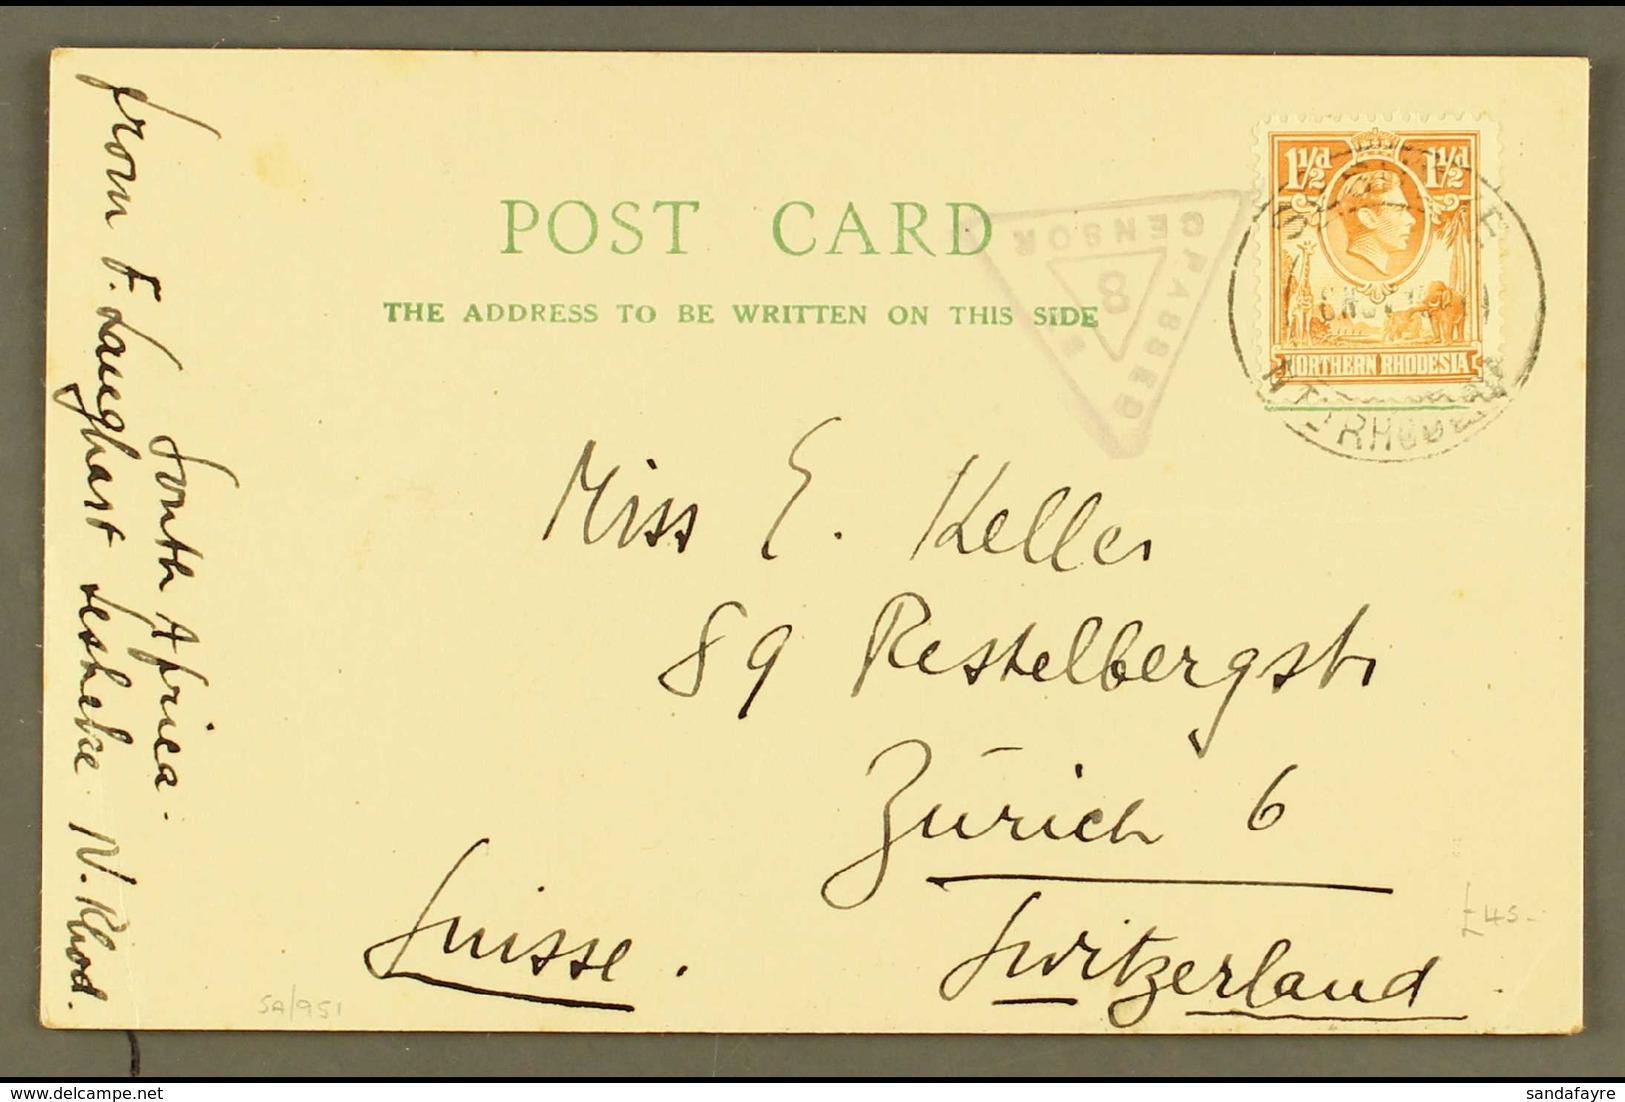 POST CARD
THE ADDRESS TO BE WRITTEN ON THIS SIDE
1½d 1½d
NORTHERN RHODESIA
RHODESIA
PASSED
BY
CENSOR
8
Miss E. Keller
89 Restelbergstr
Zürich 6
Switzerland
Suisse.
from F. Langhart Sesheke N. Rhod.
South Africa.
£45-
SA/951
sandafayre